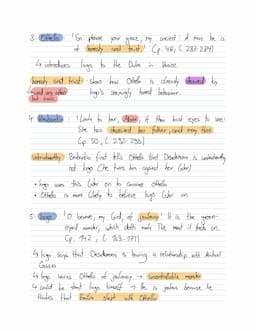 3. Othello : 'So please your grace, my ancient. A man he is
of honesty and trust.' (p. 48, l. 283-284)
↳ introduces Iago to the Duke in Venice
'honesty and trust' shows how Othello is already deceived by
Iago's seemingly honest behaviour.
4. Brabantio : 'Look to her, Moor, if thou hast eyes to see:
She has deceived her father, and may thee'
(p. 50, l. 292-293)
Brabantio first tells Othello that Desdemona is
not loyal (she turns him against her later)
• Iago uses this later on to convince Othello
• Othello is more likely to believe Iago later on
5. Iago : 'O beware, my lord, of jealousy! It is the green-
eyed monster, which doth mock The meat it feeds on.
(p. 142, l.
↳ Iago says that Desdemona is having a relationship with Michael
Cassio
↳ Iago warns Othello of jealousy → uncontrollable monster
↳ could be that Iago himself → he is jealous because he
thinks that Emilia slept with Othello